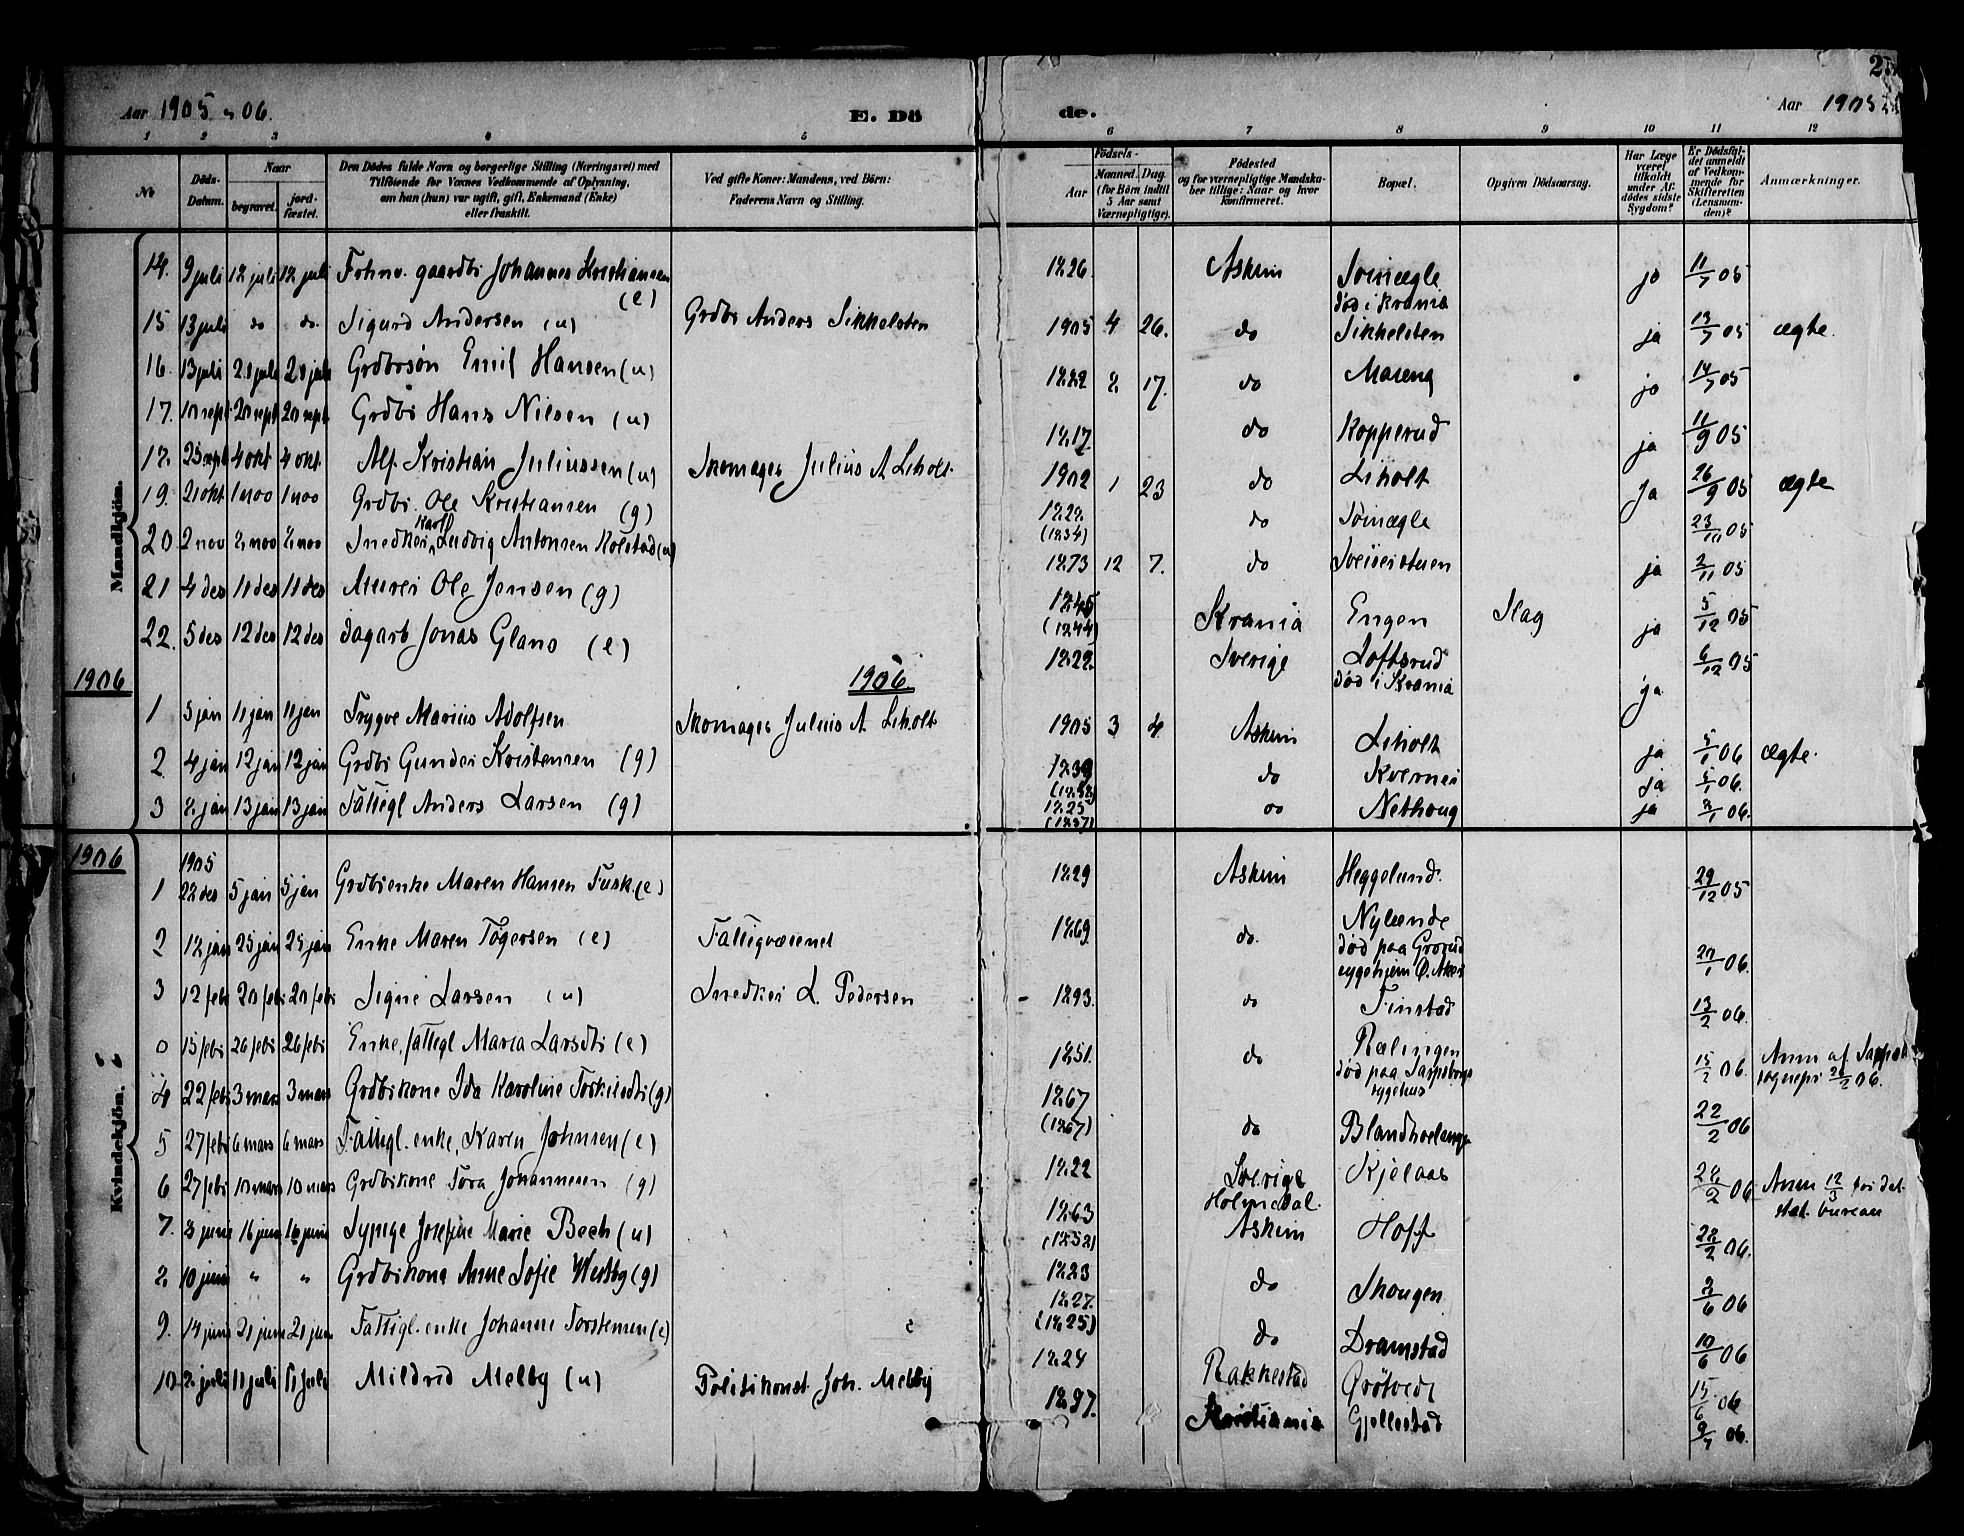 Aar 1905 & 06.
E. Dö
de.
Aar 1905
1 2 3 4 5 6 7 8 9 10 11 12
No
Döds-Datum.
Naar
begravet.
jord-fæstet.
Den Dödes fulde Navn og borgerlige Stilling (Næringsvei) med
Tilföiende for Voxnes Vedkommende af Oplysning,
om han (hun) var ugift, gift, Enkemand (Enke)
eller fraskilt.
Ved gifte Koner: Mandens, ved Börn:
Faderens Navn og Stilling.
Födsels-
Aar
Maaned. Dag.
(for Börn indtil
5 Aar samt
Værnepligtige).
Födested
og for værnepligtige Mandska-
ber tillige: Naar og hvor
konfirmeret.
Bopæl.
Opgiven Dödsaarsag.
Har Læge
været
tilkaldt
under Af-
dödes sidste
Sygdom?
Er Dödsfal-
det anmeldt
af Vedkom-
mende for
Skifteretten
(Lensman-
den)?
Anmærkninger.
Mandkjön.
14. 9 juli 12 juli 12 juli Forhnv. gaardbr Johannes Kristiansen (e) 1826. Askim død i Krania ja 11/7 05
15 13 juli do do. Sigurd Andersen (u) Grdbr Anders Sikkelsten 1905 4 26. do Sikkelsten ja 13/7 05 ægte.
16. 13 juli 20 juli 20 juli Grdbrsøn Emil Hansen (u) 1882 2 17. do Maseng ja 14/7 05
17. 10 sept 20 sept 20 sept Grdbr Hans Nilsen (u) 1817 do Kopperud ja 11/9 05
18. 23 sept 4 okt 4 okt. Alf Kristian Juliussen (u) Skomager Julius A Liholt. 1902 1 23 do Liholt ja 26/9 05 ægte
19. 21 okt 1 nov 1 nov Grdbr. Ole Kristiansen (g) 1828 (1834) do 23/10 05
20 2 nov 8 nov 8 nov Snedker Karl Ludvig Antonsen Kolstad (u) 1873 12 7. do ja 2/11 05
21 4 des 11 des 11 des Murer Ole Jensen (g) 1845 (1844) Krania Engen Slag ja 5/12 05
22. 5 des 12 des 12 des dagarb Jonas Glans (e) 1828 Sverige Loftsrud død i Krania ja 6/12 05
1906
1906
1 5 jan 11 jan 11 jan Trygve Marius Adolfsen Skomager Julius A Liholt 1905 3 4 Askim Liholt ja 5/1 06 ægte.
2 4 jan 12 jan 12 jan Grdbr Gunder Kristensen (g) 1839 do Kverner ja 5/1 06.
3 8 jan 13 jan 13 jan Fattigl Anders Larsen (g) 1825 (1857) do Nethoug ja 8/1 06.
1906
Kvindekjön.
1 1905 22 des 5 jan 5 jan Grdbrenke Maren Hansen Fusk. (e) 1829 Askim Heggelund. 29/12 05
2 18 jan 25 jan 25 jan Enke Maren Togersen (e) Fattigvæsenet 1869 do. Nylænde død paa Grorud sygehjem Ø. Aker 20/1 06.
3 12 febr 20 febr 20 febr Signe Larsen (u) Snedker L. Pedersen 1893. do Finstad 13/2 06.
0 15 febr 26 febr 26 febr Enke, fattigl Maria Larsdtr (e) 1851. do Rælingen død paa Sarpsborgs sygehus 15/2 06. Anm af Sarpsb sognepr 26/2 06.
4 22 febr 3 mars 3 mars Grdbrkone Ida Karoline Torkildsdtr (g) 1867 (1867) do 22/2 06
5 27 febr 6 mars 6 mars Fattigl. enke, Karen Johnsen (e) 1822 Sverige Holmedal. Kjelaas 28/2 06 Anm 12/3 for det stat. bureau
6 27 febr 10 mars 10 mars Grdbrkone Tora Johannesen (g) 1863 (1852) Askim Hoff 28/2 06.
7. 3 juni 16 juni 16 juni Sypige Josefine Marie Bech (u) 1823 do Skougen 3/6 06
8. 10 juni " " Grdbrkone Anne Sofie Westby (g) 1827. (1825) do Dramstad 10/6 06
9. 14 juni 21 juni 21 juni Fattigl. enke Johanne Torstensen (e) 1824 Rakkestad Grøtvedt 15/6 06
10 8 juli 11 juli 11 juli Mildrid Melby (u) Politikonst Joh. Melby 1897. Kristiania Gjellestad 9/7 06.